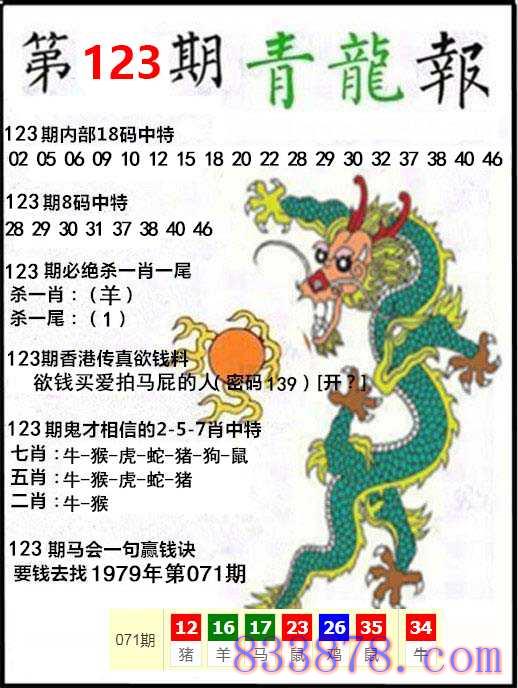 第123期 青龍報
123期内部18码中特
02 05 06 09 10 12 15 18 20 22 28 29 30 32 37 38 40 46
123期8码中特
28 29 30 31 37 38 40 46
123期必绝杀一肖一尾
杀一肖：（羊）
杀一尾：（1）
123期香港传真欲钱料
欲钱买爱拍马屁的人(密码139)[开？]
123期鬼才相信的2-5-7肖中特
七肖：牛-猴-虎-蛇-猪-狗-鼠
五肖：牛-猴-虎-蛇-猪
二肖：牛-猴
123期马会一句赢钱诀
要钱去找1979年第071期
071期 12 16 17 23 26 35 34
猪 羊 马 鼠 鸡 鼠 牛
833878.com